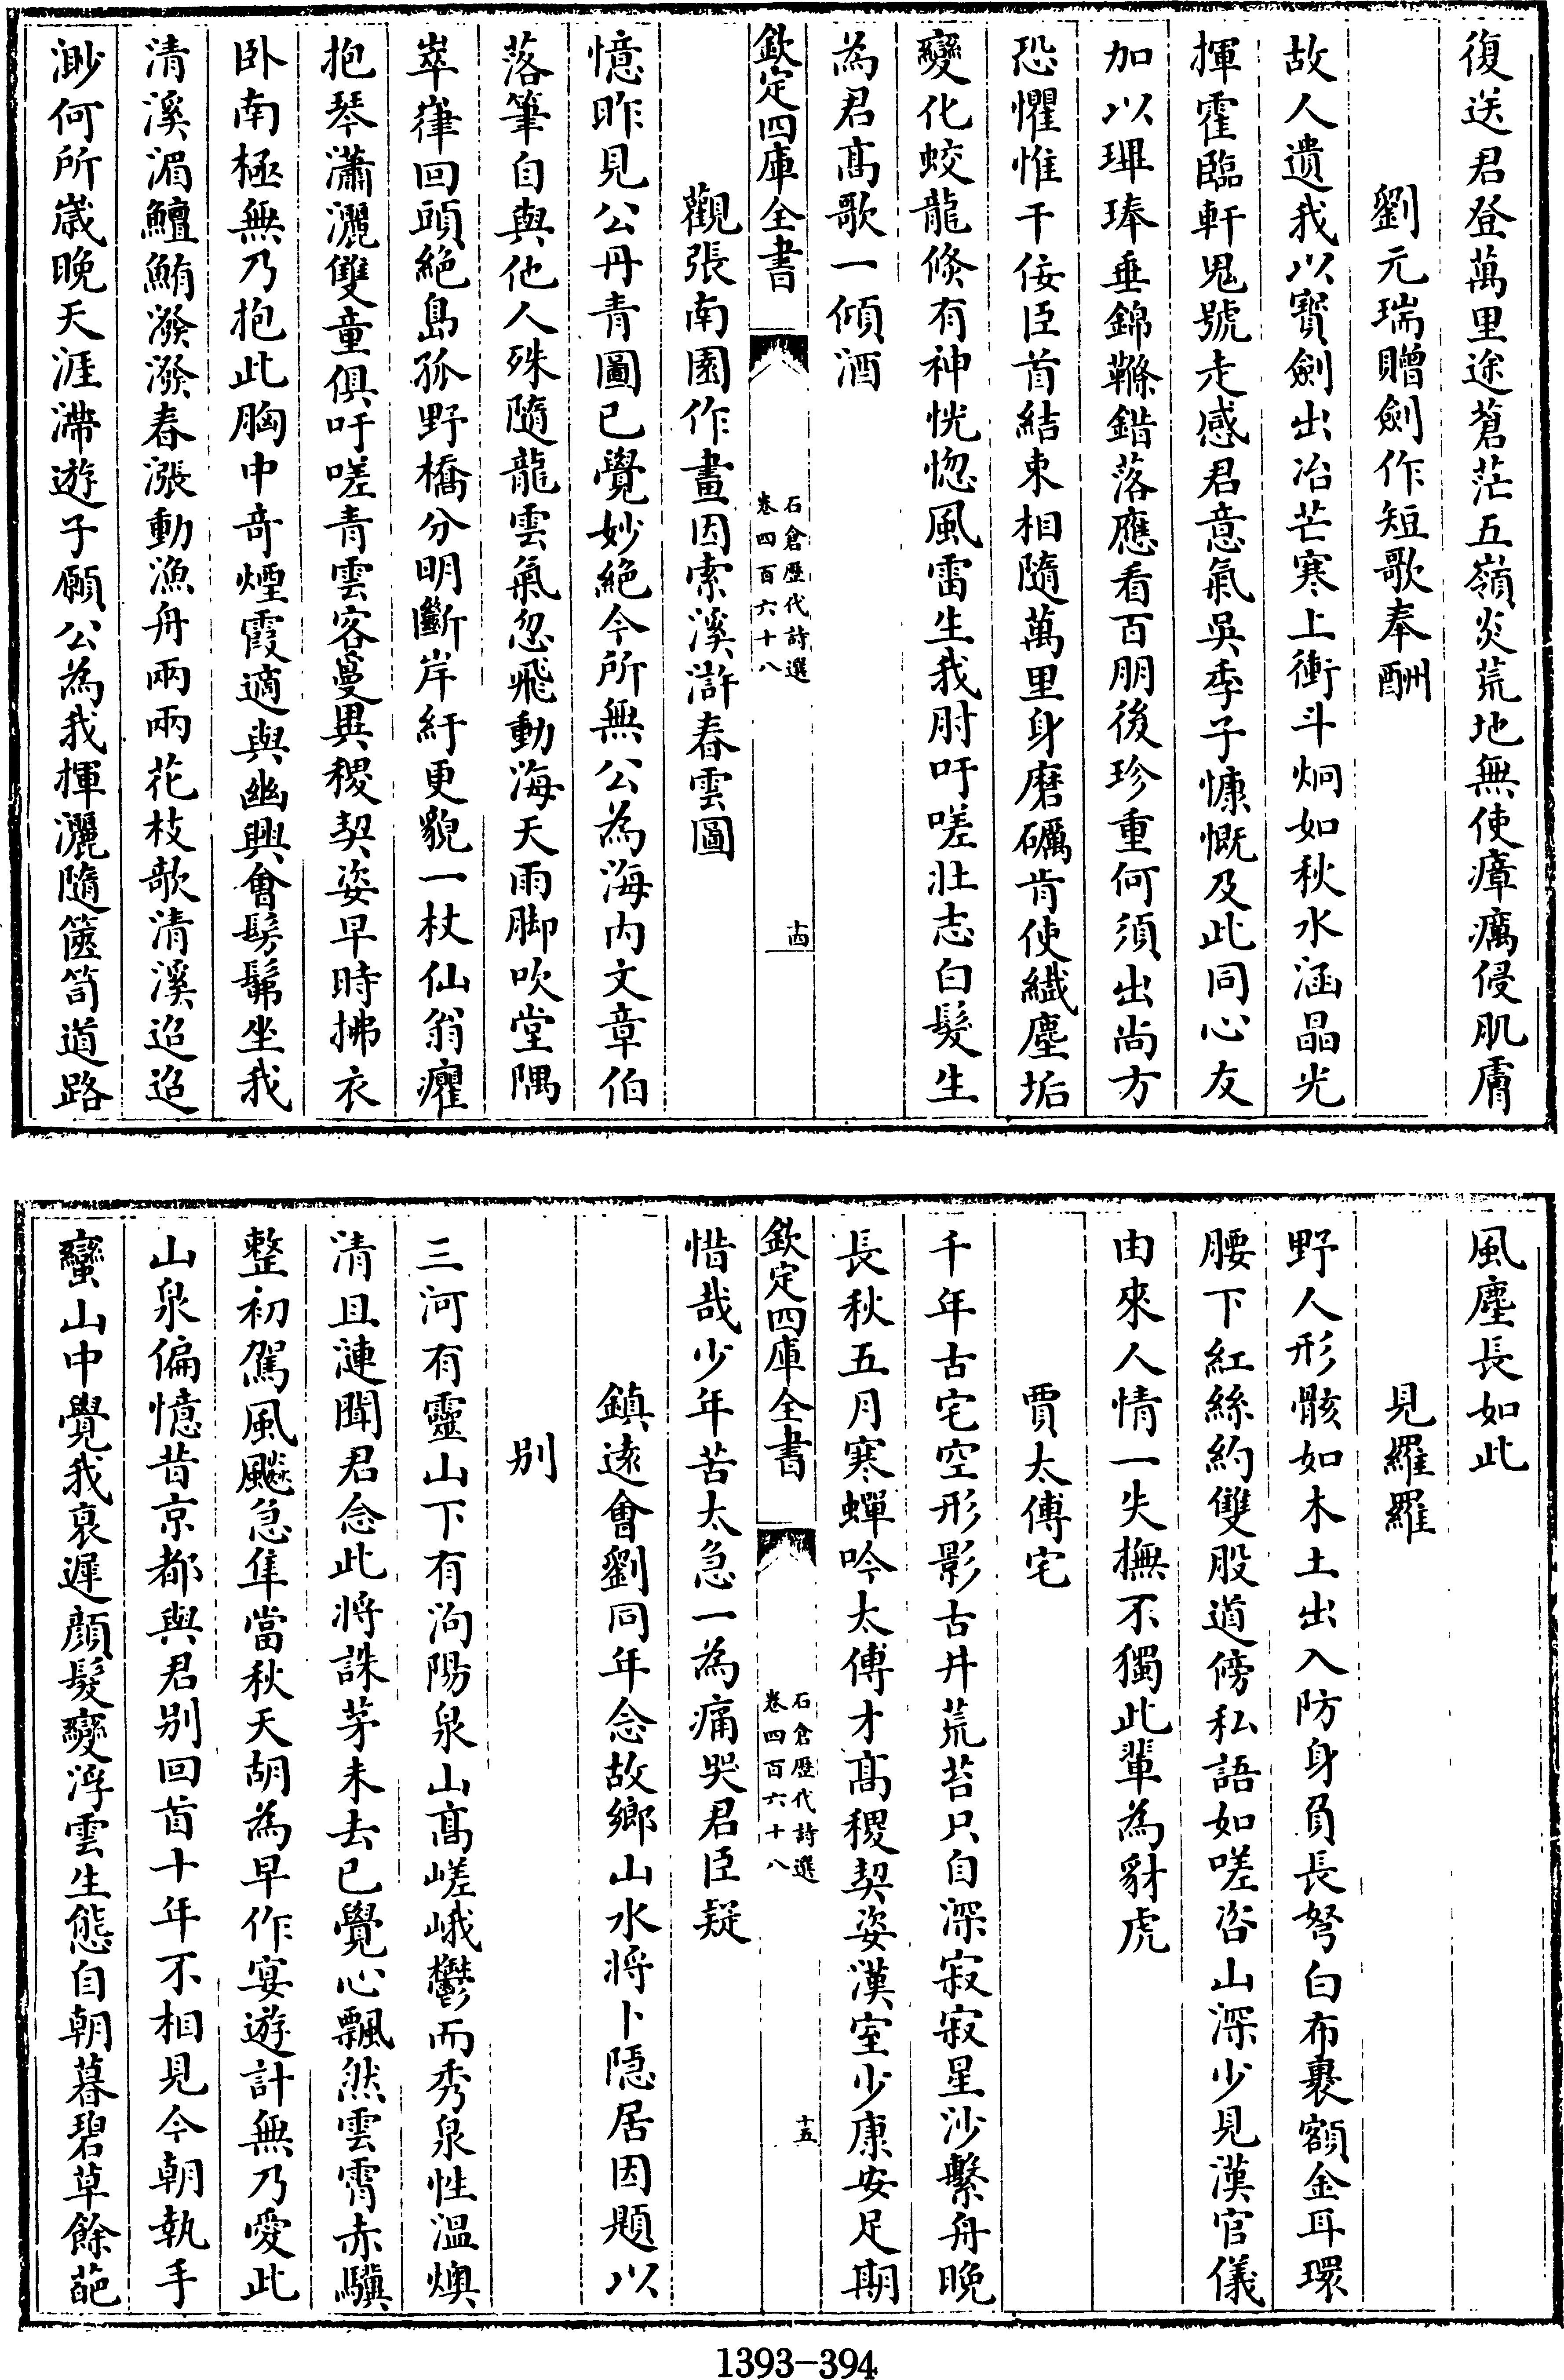 復送君登萬里途蒼茫五嶺炎荒地無使瘴癘侵肌膚
劉元瑞贈劍作短歌奉酬
故人遺我以寳劍出冶芒寒上衝斗炯如秋水涵晶光
揮霍臨軒鬼號走感君意氣吳季子慷慨及此同心友
加以琕琫垂錦縧錯落應看百朋後珍重何須出尚方
恐懼惟干佞臣首結束相隨萬里身磨礪肯使纎塵垢
變化蛟龍倐有神恍惚風雷生我肘吁嗟壯志白髮生
為君髙歌一傾酒
欽定四庫全書
石倉歴代詩選
卷四百六十八
十四
觀張南園作畫因索溪滸春雲圖
憶昨見公丹青圖已覺妙絶今所無公為海内文章伯
落筆自與他人殊隨龍雲氣忽飛動海天雨脚吹堂隅
崒嵂回頭絶島孤野橋分明斷岸紆更貌一杖仙翁癯
抱琴瀟灑雙童俱吁嗟青雲客蔓異稷契姿早時拂衣
卧南極無乃抱此胸中竒煙霞適與幽興會髣髴坐我
清溪湄鱣鮪潑潑春漲動漁舟兩兩花枝欹清溪迢迢
渺何所嵗晚天涯滯遊子願公為我揮灑隨篋笥道路
風塵長如此
見羅羅
野人形骸如木土出入防身負長弩白布裹額金耳環
腰下紅絲約雙股道傍私語如嗟咨山深少見漢官儀
由來人情一失撫不獨此輩為豺虎
賈太傅宅
千年古宅空形影古井荒苔只自深寂寂星沙繫舟晚
長秋五月寒蟬吟太傅才髙稷契姿漢室少康安足期
欽定四庫全書
石倉歴代詩選
卷四百六十八
十五
惜哉少年苦太急一為痛哭君臣疑
鎮逺會劉同年念故鄉山水將卜隠居因題以
别
三河有靈山下有泃陽泉山髙嵯峨鬱而秀泉性溫燠
清且漣聞君念此将誅茅未去已覺心飄然雲霄赤驥
整初駕風飈急隼當秋天胡為早作宴遊計無乃愛此
山泉偏憶昔京都與君别回首十年不相見今朝執手
蠻山中覺我衰遲顔髮變浮雲生態自朝暮碧草餘葩
1393-394